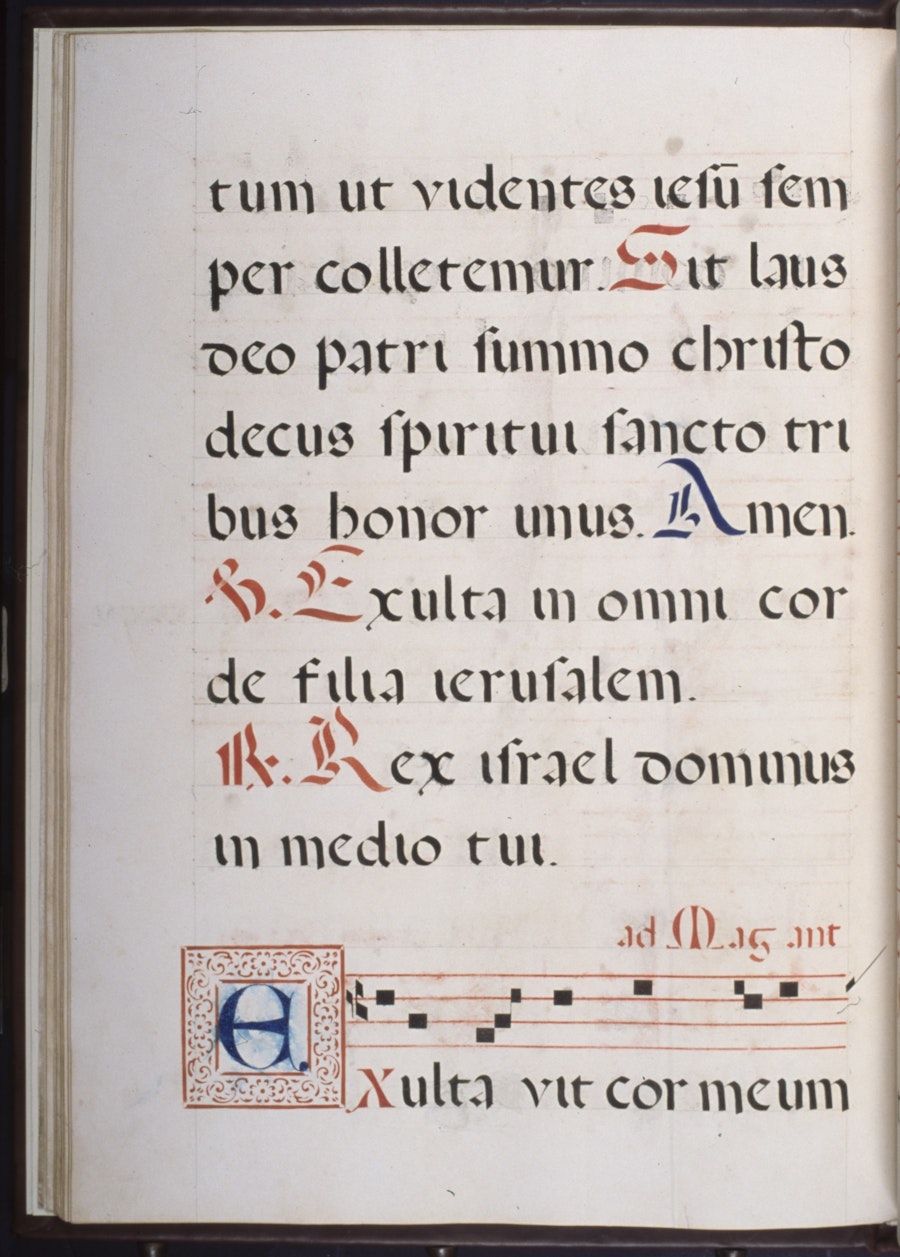 tum ut videntes ieſū ſem
per colletemur. Sit laus
deo patri ſummo chriſto
decus ſpiritui ſancto tri
bus honor unus. Amen.
℣. Exulta in omni cor
de filia ieruſalem.
℟. Rex iſrael dominus
in medio tui.
ad Mag ant
EXulta vit cor meum